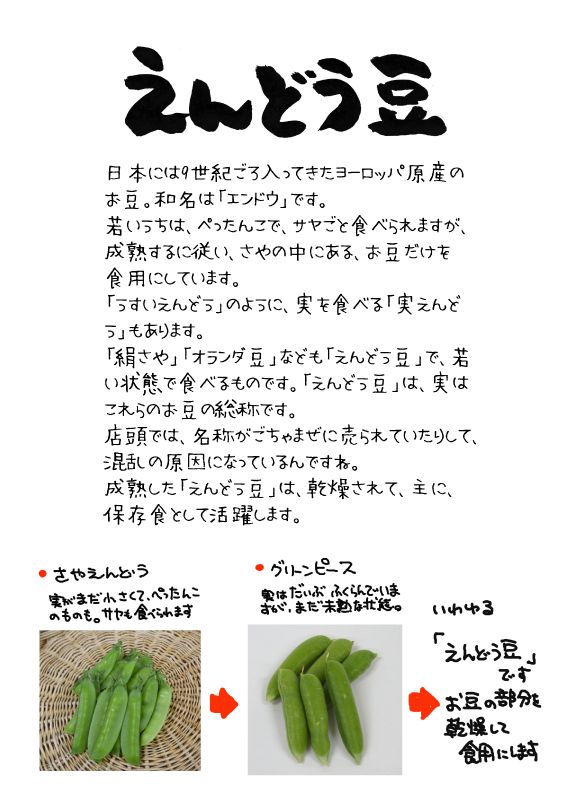 えんどう豆
日本には9世紀ごろ入ってきたヨーロッパ原産の
お豆。和名は「エンドウ」です。
若いうちは、ぺったんこで、サヤごと食べられますが、
成熟するに従い、さやの中にある、お豆だけを
食用にしています。
「うすいえんどう」のように、実を食べる「実えんど
う」もあります。
「絹さや」「オランダ豆」なども「えんどう豆」で、若
い状態で食べるものです。「えんどう豆」は、実は
これらのお豆の総称です。
店頭では、名称がごちゃまぜに売られていたりして、
混乱の原因になっているんですね。
成熟した「えんどう豆」は、乾燥されて、主に、
保存食として活躍します。
さやえんどう
実がまだ小さくて、ぺったんこ
のものも。サヤも食べられます
グリーンピース
実はだいぶふくらんでいま
すが、まだ未熟な状態。
いわゆる
「えんどう豆」
です
お豆の部分を
乾燥して
食用にします